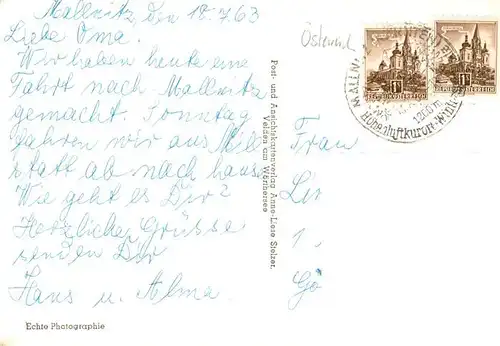 Mallnitz, den 18.7.63
Liebe Oma.
Wir haben heute eine
Fahrt nach Mallnitz
gemacht. Sonntag
fahren wir aus Mill
statt ab nach haus.
Wie geht es Dir?
Herzlicher Grüsse
senden Dir
Hans u. Alma
Echte Photographie
Post- und Ansichtskartenverlag Anne-Liese Stelzer,
Velden am Wörthersee
REPUBLIK ÖSTERREICH
REPUBLIK ÖSTERREICH
1200 m
Höhenluftkurort
Frau
1.